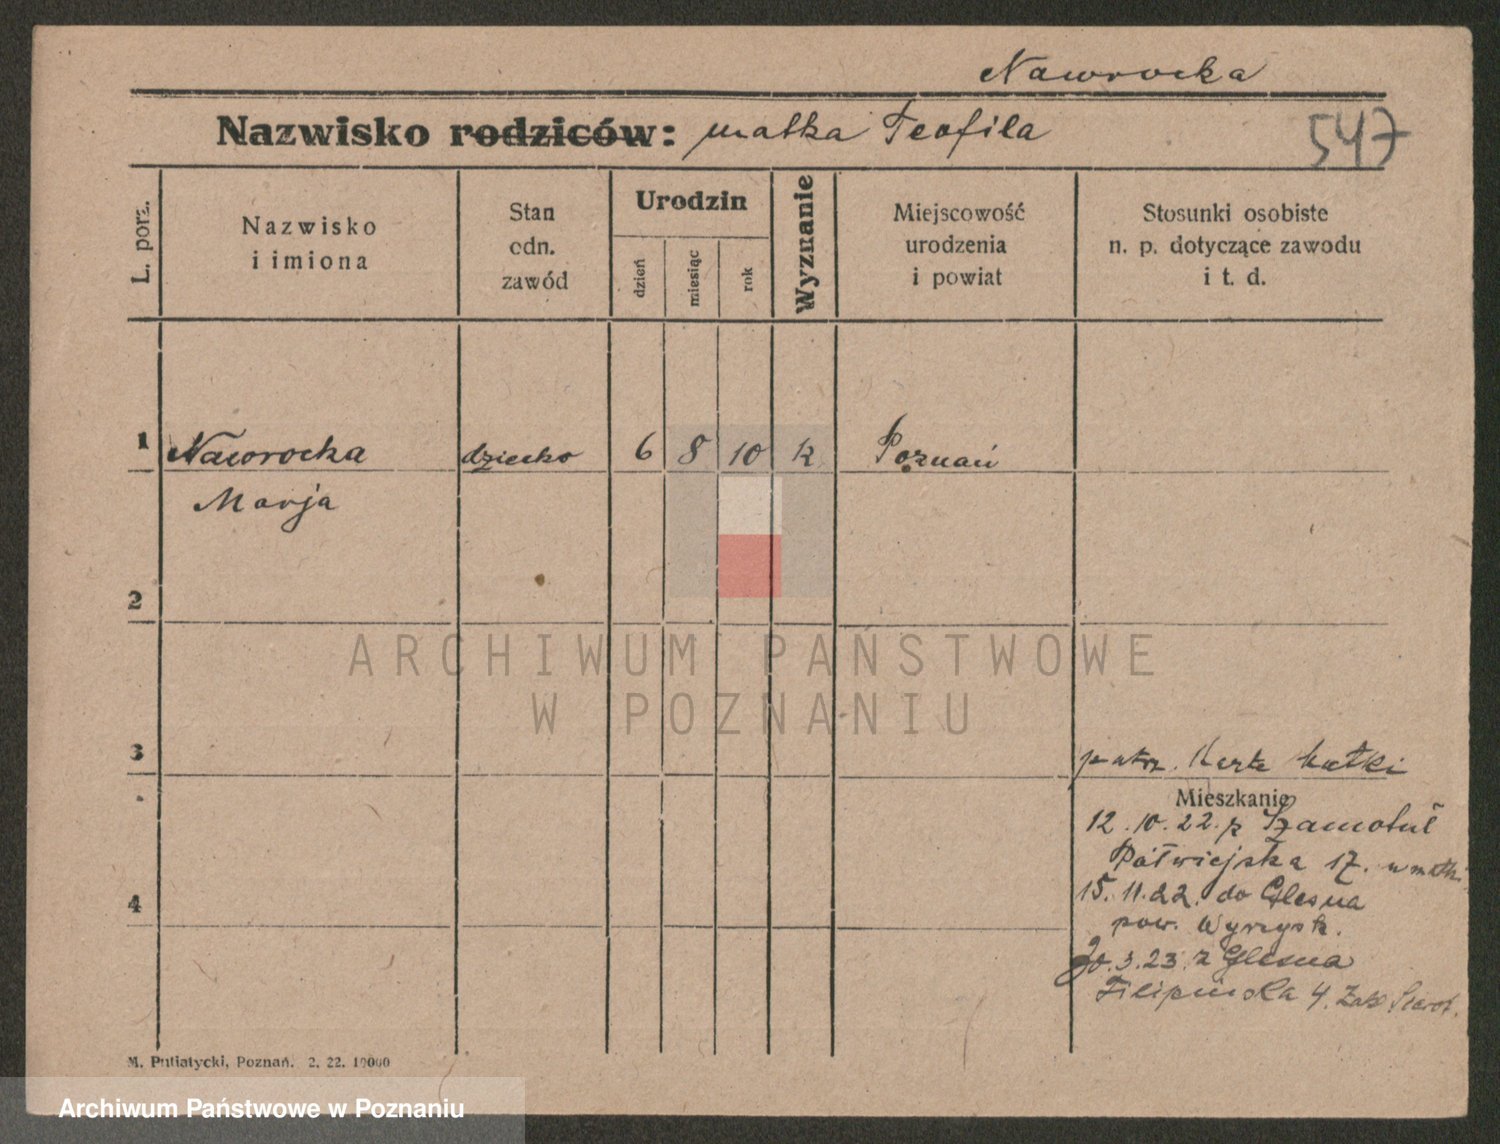 Nawrocka
Nazwisko rodziców: matka Teofila
547
L. porz.
Nazwisko
i imiona
Stan
cdn.
zawód
Urodzin
dzień
miesiąc
rok
Wyznanie
Miejscowość
urodzenia
i powiat
Stosunki osobiste
n. p. dotyczące zawodu
i t. d.
1 Nawrocka dziecko 6 8 10 k Poznań
Marja
2
3
4
patrz. Karta Matki
Mieszkanie
12.10.22. z Szamotuł
Półwiejska 17. u matki
15.11.22. do Glesna
pow. Wyrzysk.
30.3.23. z Glesna
Filipińska 4. Zakł.
ARCHIWUM PAŃSTWOWE
W POZNANIU
M. Putiatycki, Poznań. 2. 22. 10000
Archiwum Państwowe w Poznaniu